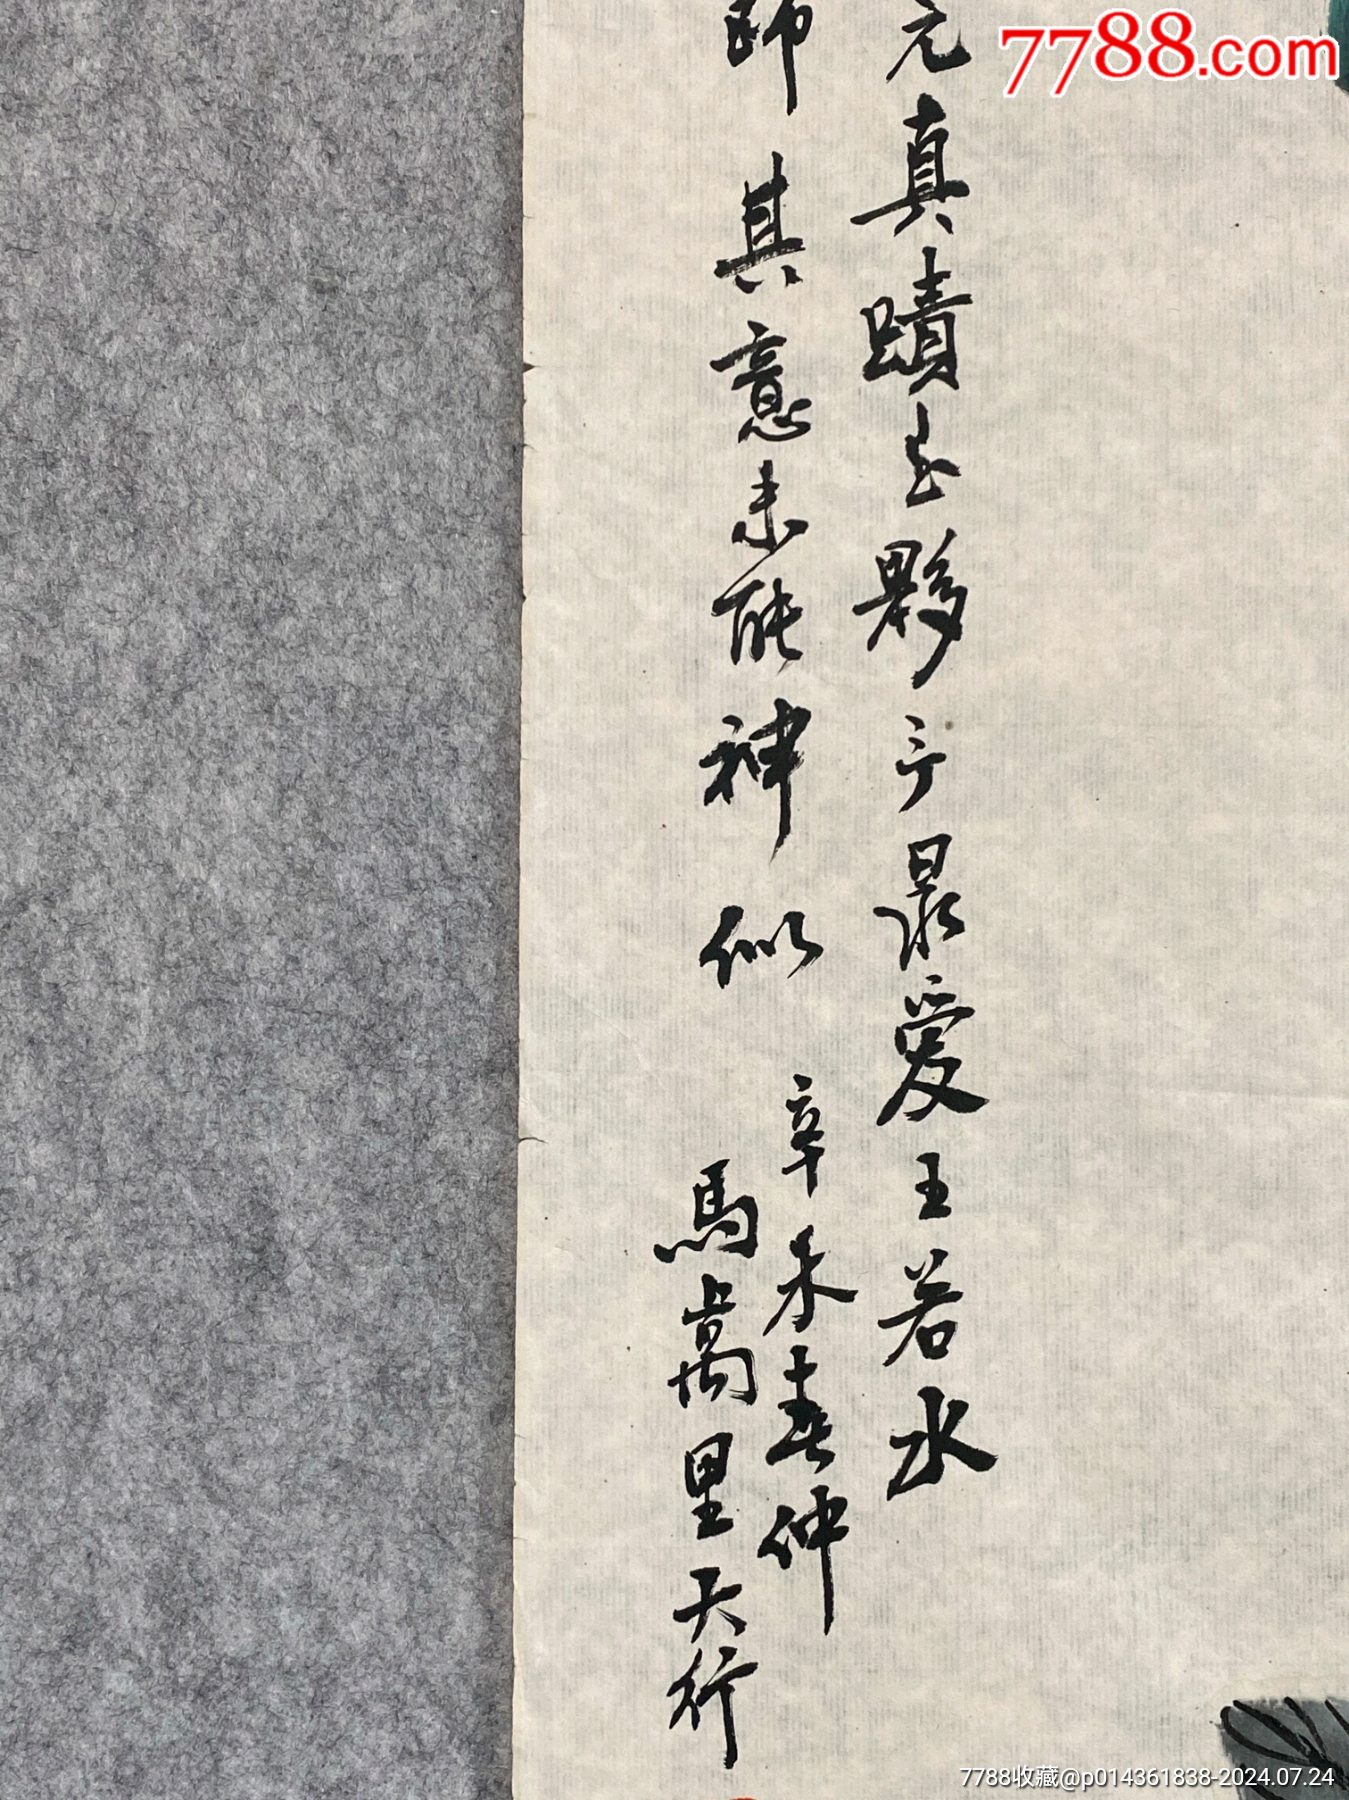 7788.com
元真蹟至夥予最愛王若水
師其意未能神似
辛未春仲
馬萬里天行
7788收藏@p014361838-2024.07.24